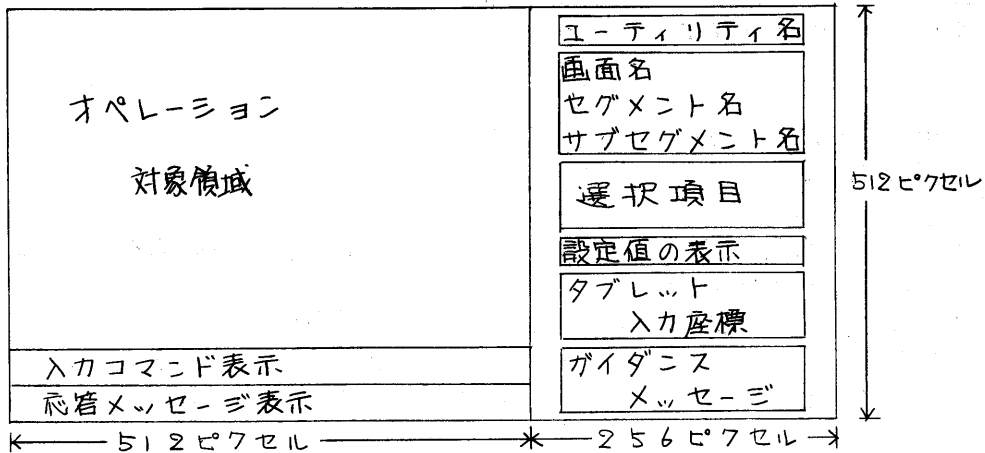 オペレーション
対象領域
入力コマンド表示
応答メッセージ表示
ユーティリティ名
画面名
セグメント名
サブセグメント名
選択項目
設定値の表示
タブレット
入力座標
ガイダンス
メッセージ
512ピクセル
512ピクセル
256ピクセル